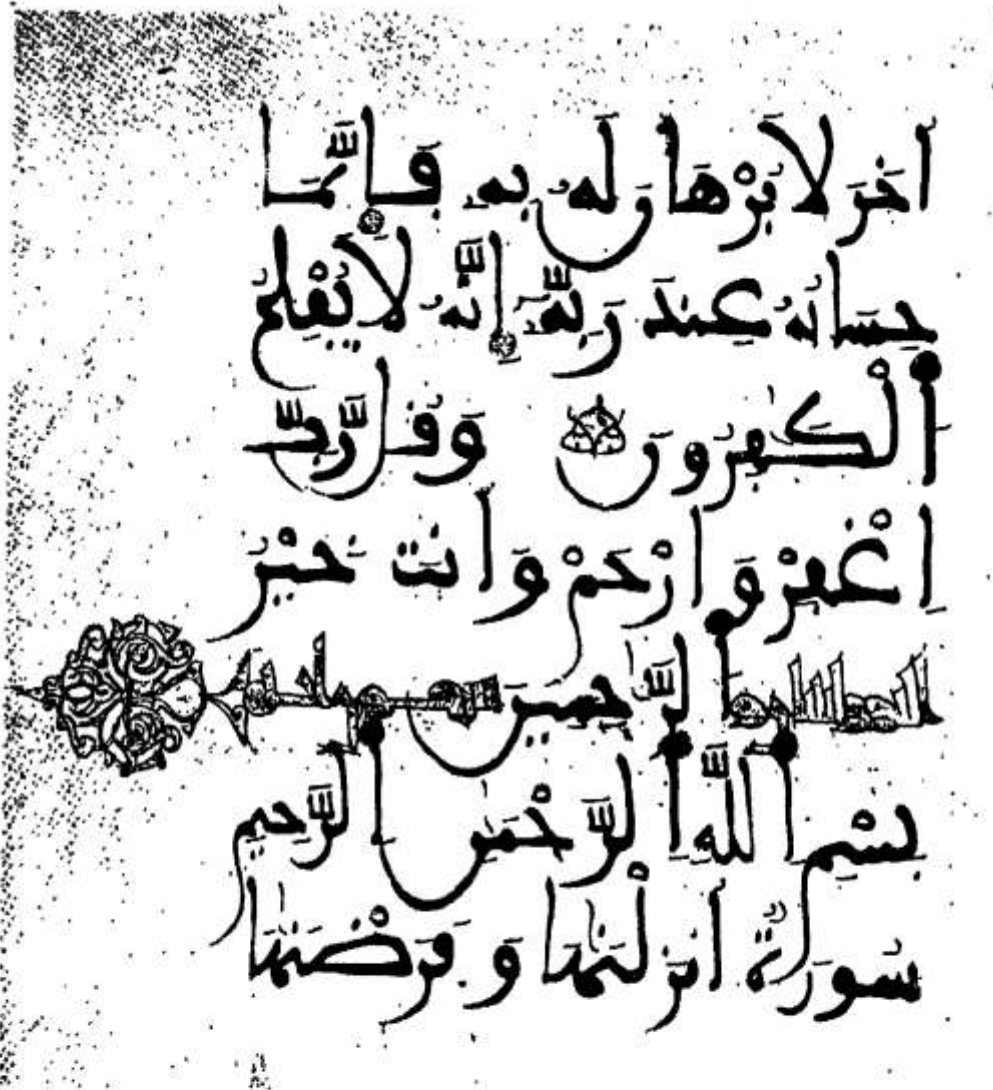 اخَرَ لَا بُرْهَٰنَ لَهُ بِهِ فَإِنَّمَا
حِسَابُهُ عِندَ رَبِّهِ إِنَّهُ لَا يُفْلِحُ
اَلْكَٰفِرُونَ وَقُل رَّبِّ
اِغْفِرْ وَارْحَمْ وَأَنتَ خَيْرُ
اُلرَّٰحِمِينَ
بِسْمِ اِللَّهِ اِلرَّحْمَٰنِ اِلرَّحِيمِ
سُورَةٌ أَنزَلْنَٰهَا وَفَرَضْنَٰهَا